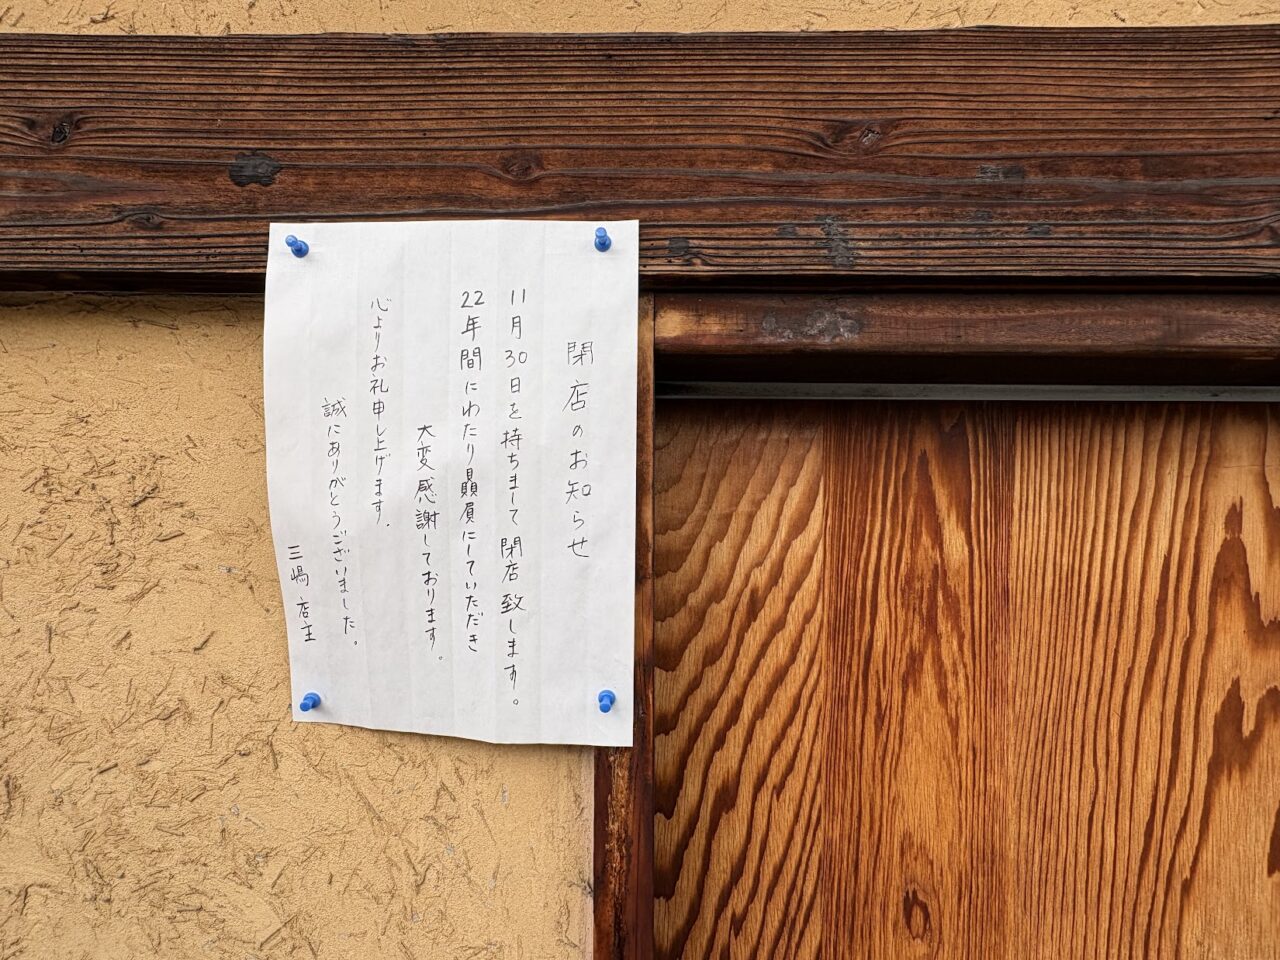 閉店のお知らせ
11月30日を持ちまして閉店致します。
22年間にわたり贔屓にしていただき
大変感謝しております。
心よりお礼申し上げます。
誠にありがとうございました。
三嶋 店主